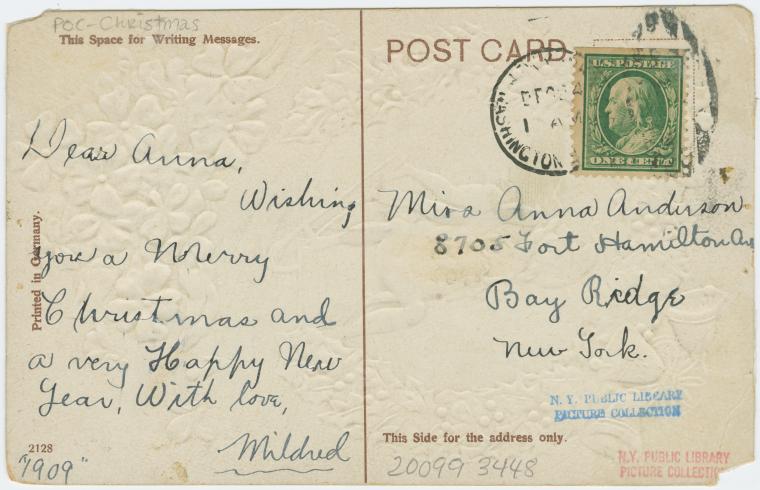 POC-Christmas
This Space for Writing Messages.
Dear Anna,
Wishing
you a Merry
Christmas and
a very Happy New
Year, With love,
Mildred
Printed in Germany.
2128
"1909"
POST CARD
WASHINGTON
DEC
1 A
U.S. POSTAGE
ONE CENT
Miss Anna Anderson
8705 Fort Hamilton Av
Bay Ridge
New York.
N. Y. PUBLIC LIBRARY
PICTURE COLLECTION
This Side for the address only.
20099 3448
N.Y. PUBLIC LIBRARY
PICTURE COLLECTION